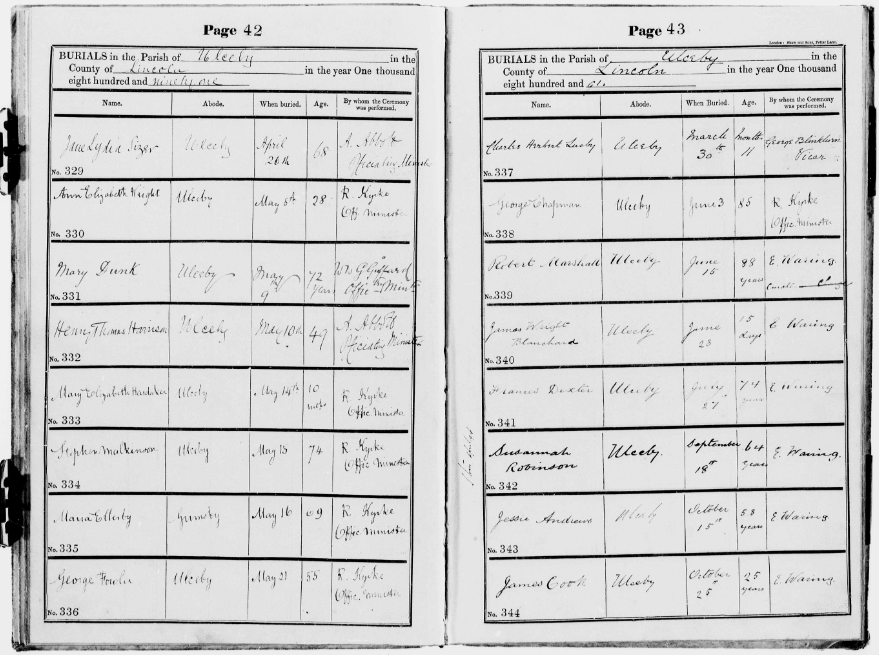 Page 42
BURIALS in the Parish of Ulceby in the
County of Lincoln in the year One thousand
eight hundred and ninety one
Name. Abode. When buried. Age. By whom the Ceremony
was performed.
Jane Lydia Sizer Ulceby April 26th 68 A. Abbott
Officiating Minister
No. 329
Ann Elizabeth Wright Ulceby May 8th 28 R. Kyrke
Off. Minister
No. 330
Mary Dunk Ulceby May 9th 72 years
No. 331
Henry Thomas Harrison Ulceby May 10th 49 A. Abbott
Officiating Minister
No. 332
Mary Elizabeth Ulceby May 14th 10 R. Kyrke
Offic. Minister
No. 333
Stephen Malkinson Ulceby May 15 74 R. Kyrke
Offic. Minister
No. 334
Maria Ellerby Grimsby May 16 69 R. Kyrke
Offic. Minister
No. 335
George Fowler Ulceby May 21 55 R. Kyrke
Offic. Minister
No. 336
Page 43
BURIALS in the Parish of Ulceby in the
County of Lincoln in the year One thousand
eight hundred and 91.
Name. Abode. When Buried. Age. By whom the Ceremony
was performed.
Charles Herbert Ulceby March 30th Months 11 George
Vicar
No. 337
George Chapman Ulceby June 3 85 R Kyrke
Offic. Minister
No. 338
Robert Marshall Ulceby June 15 88 years E Waring
No. 339
James Wright
Blanchard Ulceby June 23 15 days E Waring
No. 340
Frances Dexter Ulceby 27 74 years E Waring
No. 341
Susannah
Robinson Ulceby. September 18th 64 years E. Waring.
No. 342
Jessie Andrews Ulceby October 15th 58 years E Waring
No. 343
James Cook Ulceby October 25th 25 years E Waring
No. 344